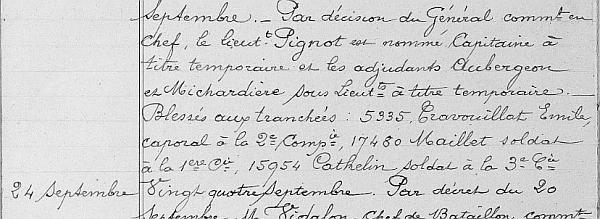 Septembre. _ Par décision du Général commt en
Chef, le lieutt Pignot est nommé Capitaine à
titre temporaire et les adjudants Aubergeon
et Michardière sous Lieutts à titre temporaire. _
Blessés aux tranchées : 5335, Travouillat Emile,
caporal à la 2e Compie, 17480 Maillet soldat
à la 1ere Cie, 15954 Cathelin soldat à la 3e Cie
24 Septembre Vingt quatre Septembre. Par décret du 20
Septembre, M. Vidalon, Chef de Bataillon, commt